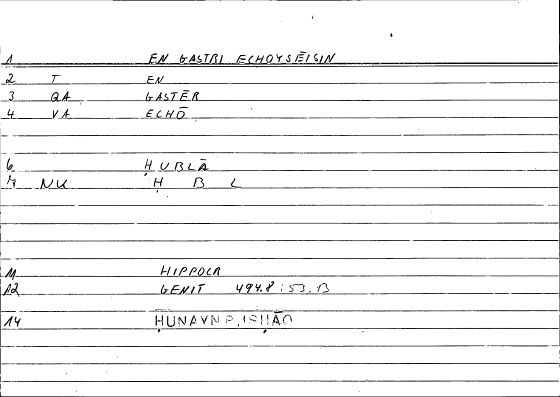 1 EN GASTRI ECHOYSĒISIN
2 T EN
3 QA GASTĒR
4 VA ECHŌ
6 ḤUBLĀ
7 NK Ḥ B L
11 HIPPOCR
12 GENIT 494.8 : 53.13
14